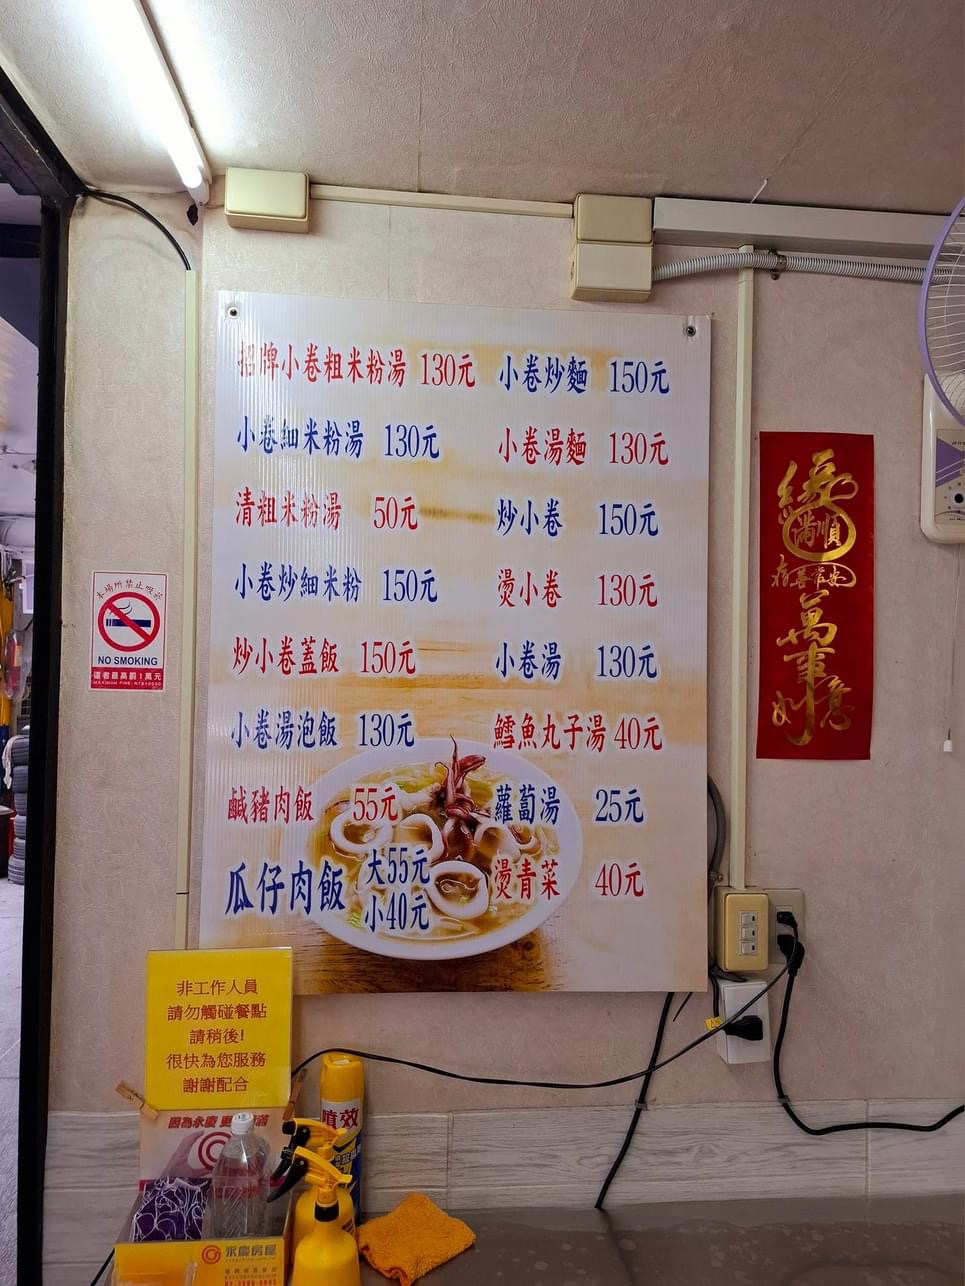 招牌小卷粗米粉湯 130元
小卷細米粉湯 130元
清粗米粉湯 50元
小卷炒細米粉 150元
炒小卷蓋飯 150元
小卷湯泡飯 130元
鹹豬肉飯 55元
瓜仔肉飯 大55元
小40元
小卷炒麵 150元
小卷湯麵 130元
炒小卷 150元
燙小卷 130元
小卷湯 130元
鱈魚丸子湯 40元
蘿蔔湯 25元
燙青菜 40元
本場所禁止吸菸
NO SMOKING
違者最高罰1萬元
MAXIMUM FINE, NT$10000
順
滿
萬事如意
非工作人員
請勿觸碰餐點
請稍後!
很快為您服務
謝謝配合
因為永慶 更
噴效
永慶房屋